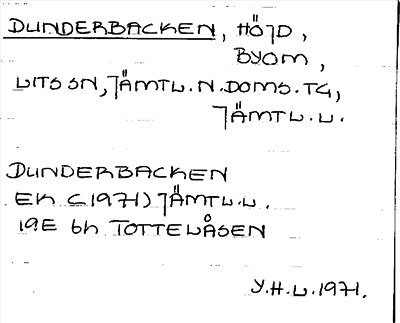 DUNDERBACKEN, HÖJD,
BYOM,
LITS SN, JÄMTL.N.DOMS.TG,
JÄMTL.L.
DUNDERBACKEN
EK (1971) JÄMTL.L.
19E 6h TOTTELÅSEN
Y.H.L.1971.